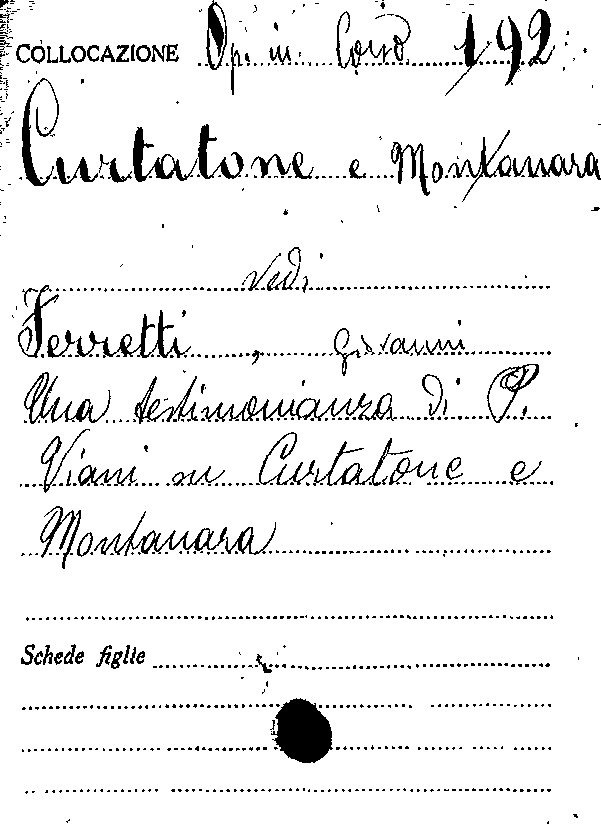 COLLOCAZIONE Op. in Corso 192
Curtatone e Montanara
Vedi
Ferretti, Giovanni
Una testimonianza di P.
Viani su Curtatone e
Montanara
Schede figlie